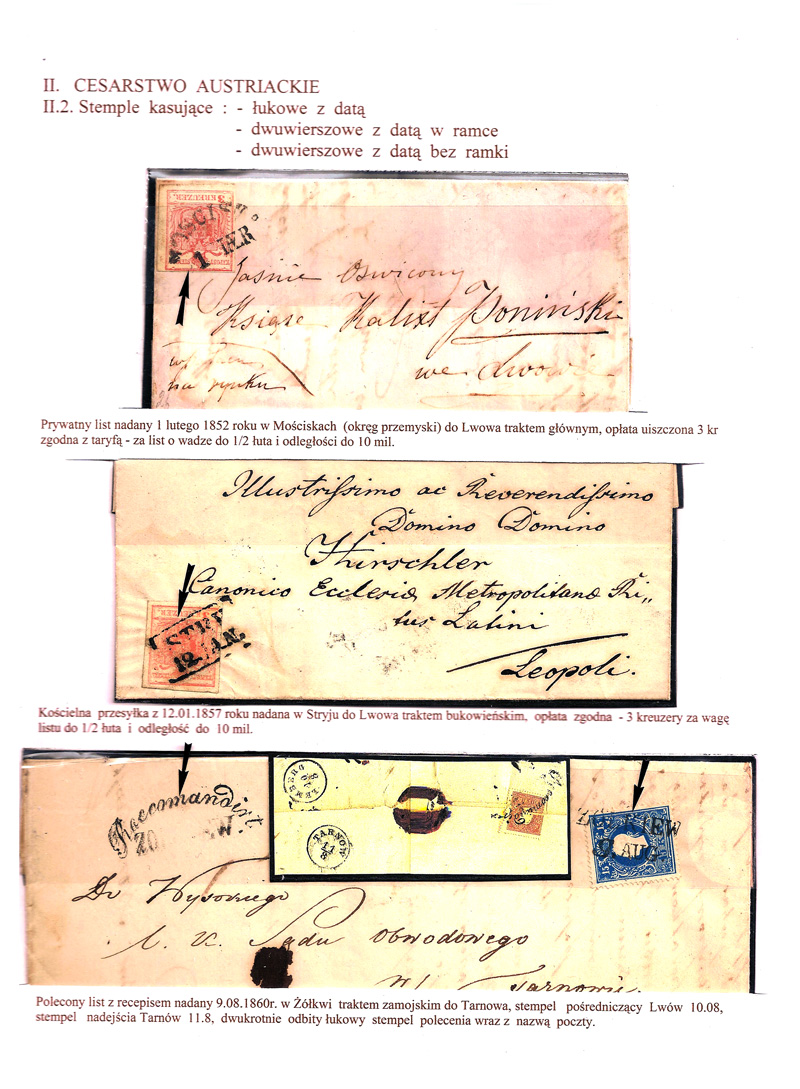 II. CESARSTWO AUSTRIACKIE
II.2. Stemple kasujące : - łukowe z datą
- dwuwierszowe z datą w ramce
- dwuwierszowe z datą bez ramki
1 FER
Jaśnie Oswicony
Książe Kalixt Poniński
we Lwowie
na rynku
Prywatny list nadany 1 lutego 1852 roku w Mościskach (okręg przemyski) do Lwowa traktem głównym, opłata uiszczona 3 kr
zgodna z taryfą - za list o wadze do 1/2 łuta i odległości do 10 mil.
Illustrissimo ac Reverendissimo
Domino Domino
Hirschler
Canonico Ecclesiæ Metropolitanæ Ri„
tus Latini
Leopoli.
STRY
12. JAN.
Kościelna przesyłka z 12.01.1857 roku nadana w Stryju do Lwowa traktem bukowieńskim, opłata zgodna - 3 kreuzery za wagę
listu do 1/2 łuta i odległość do 10 mil.
Recomandirt.
LEMBERG
TARNOW
11
8
AUG
15
Do Wysokiego
Sądu Obwodowego
w Tarnowie.
Polecony list z recepisem nadany 9.08.1860r. w Żółkwi traktem zamojskim do Tarnowa, stempel pośredniczący Lwów 10.08,
stempel nadejścia Tarnów 11.8, dwukrotnie odbity łukowy stempel polecenia wraz z nazwą poczty.